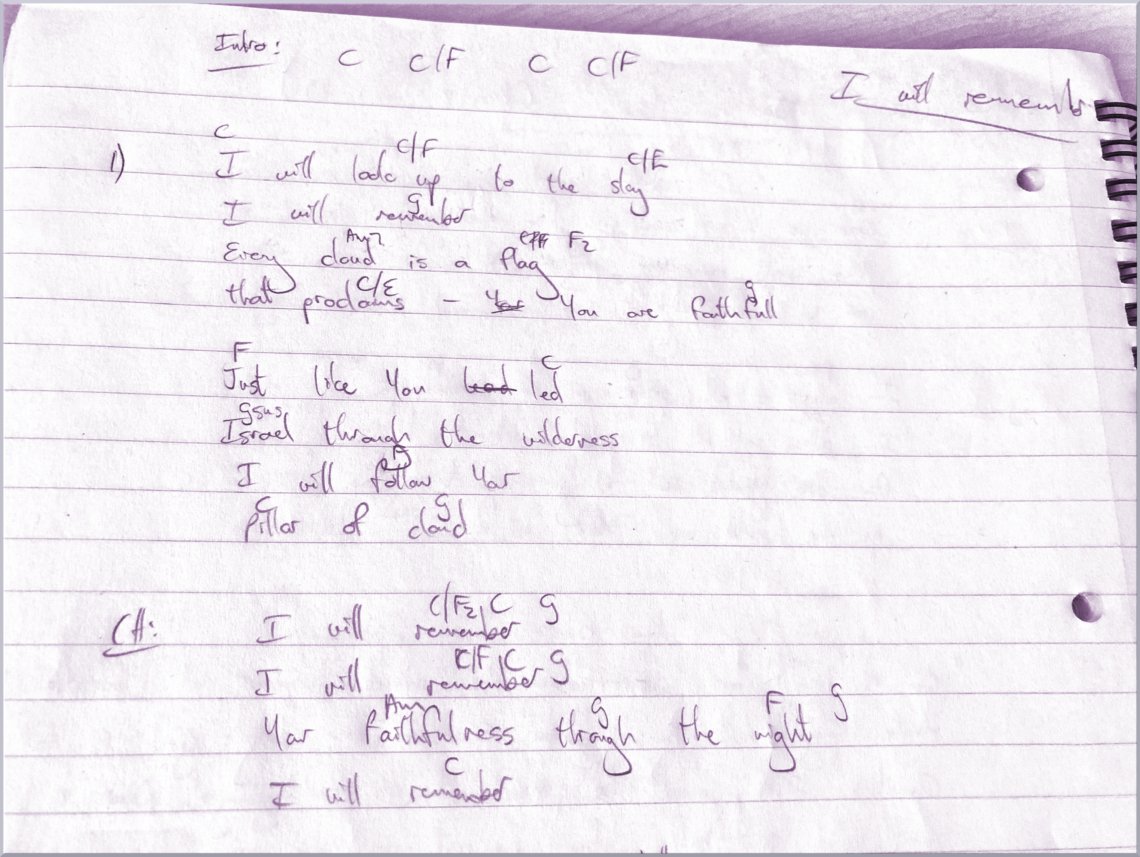 Intro: C C/F C C/F
I will remember
C C/F C/E
1) I will look up to the sky
G
I will remember
Am7 F2
Every cloud is a flag
C/E G
that proclaims – You are faithfull
F C
Just like You led
Gsus
Israel through the wilderness
I will follow Your
C G
pillar of cloud
C/F2 C G
CH: I will remember
C/F C G
I will remember
Am G F G
Your faithfulness through the night
C
I will remember